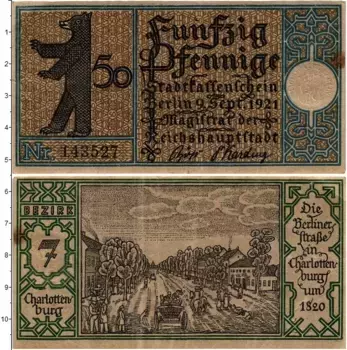 50
Funfzig
Pfennige
Stadtkassenschein
Berlin 9. Sept. 1921
Magistrat der
Reichshauptstadt
Nr. 143527
BEZIRK
7
Charlotten-
burg
Die
Berliner
straße
in
Charlotten-
burg
um
1820
1
2
3
4
5
6
7
8
9
10